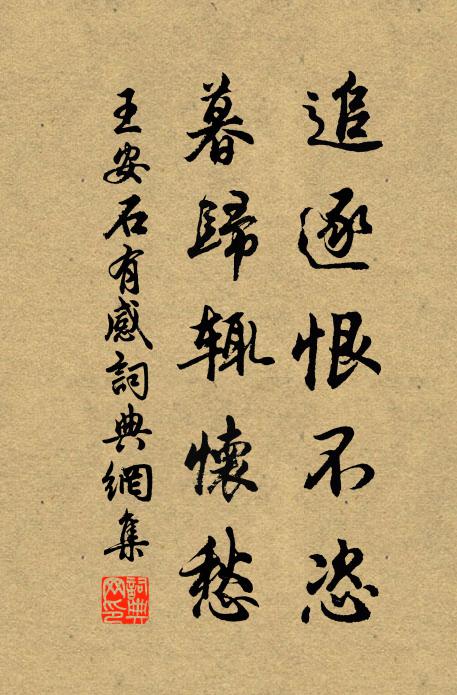 追逐恨不恣
暮歸輒懷愁
王安石有感詞典網集
詞典网印